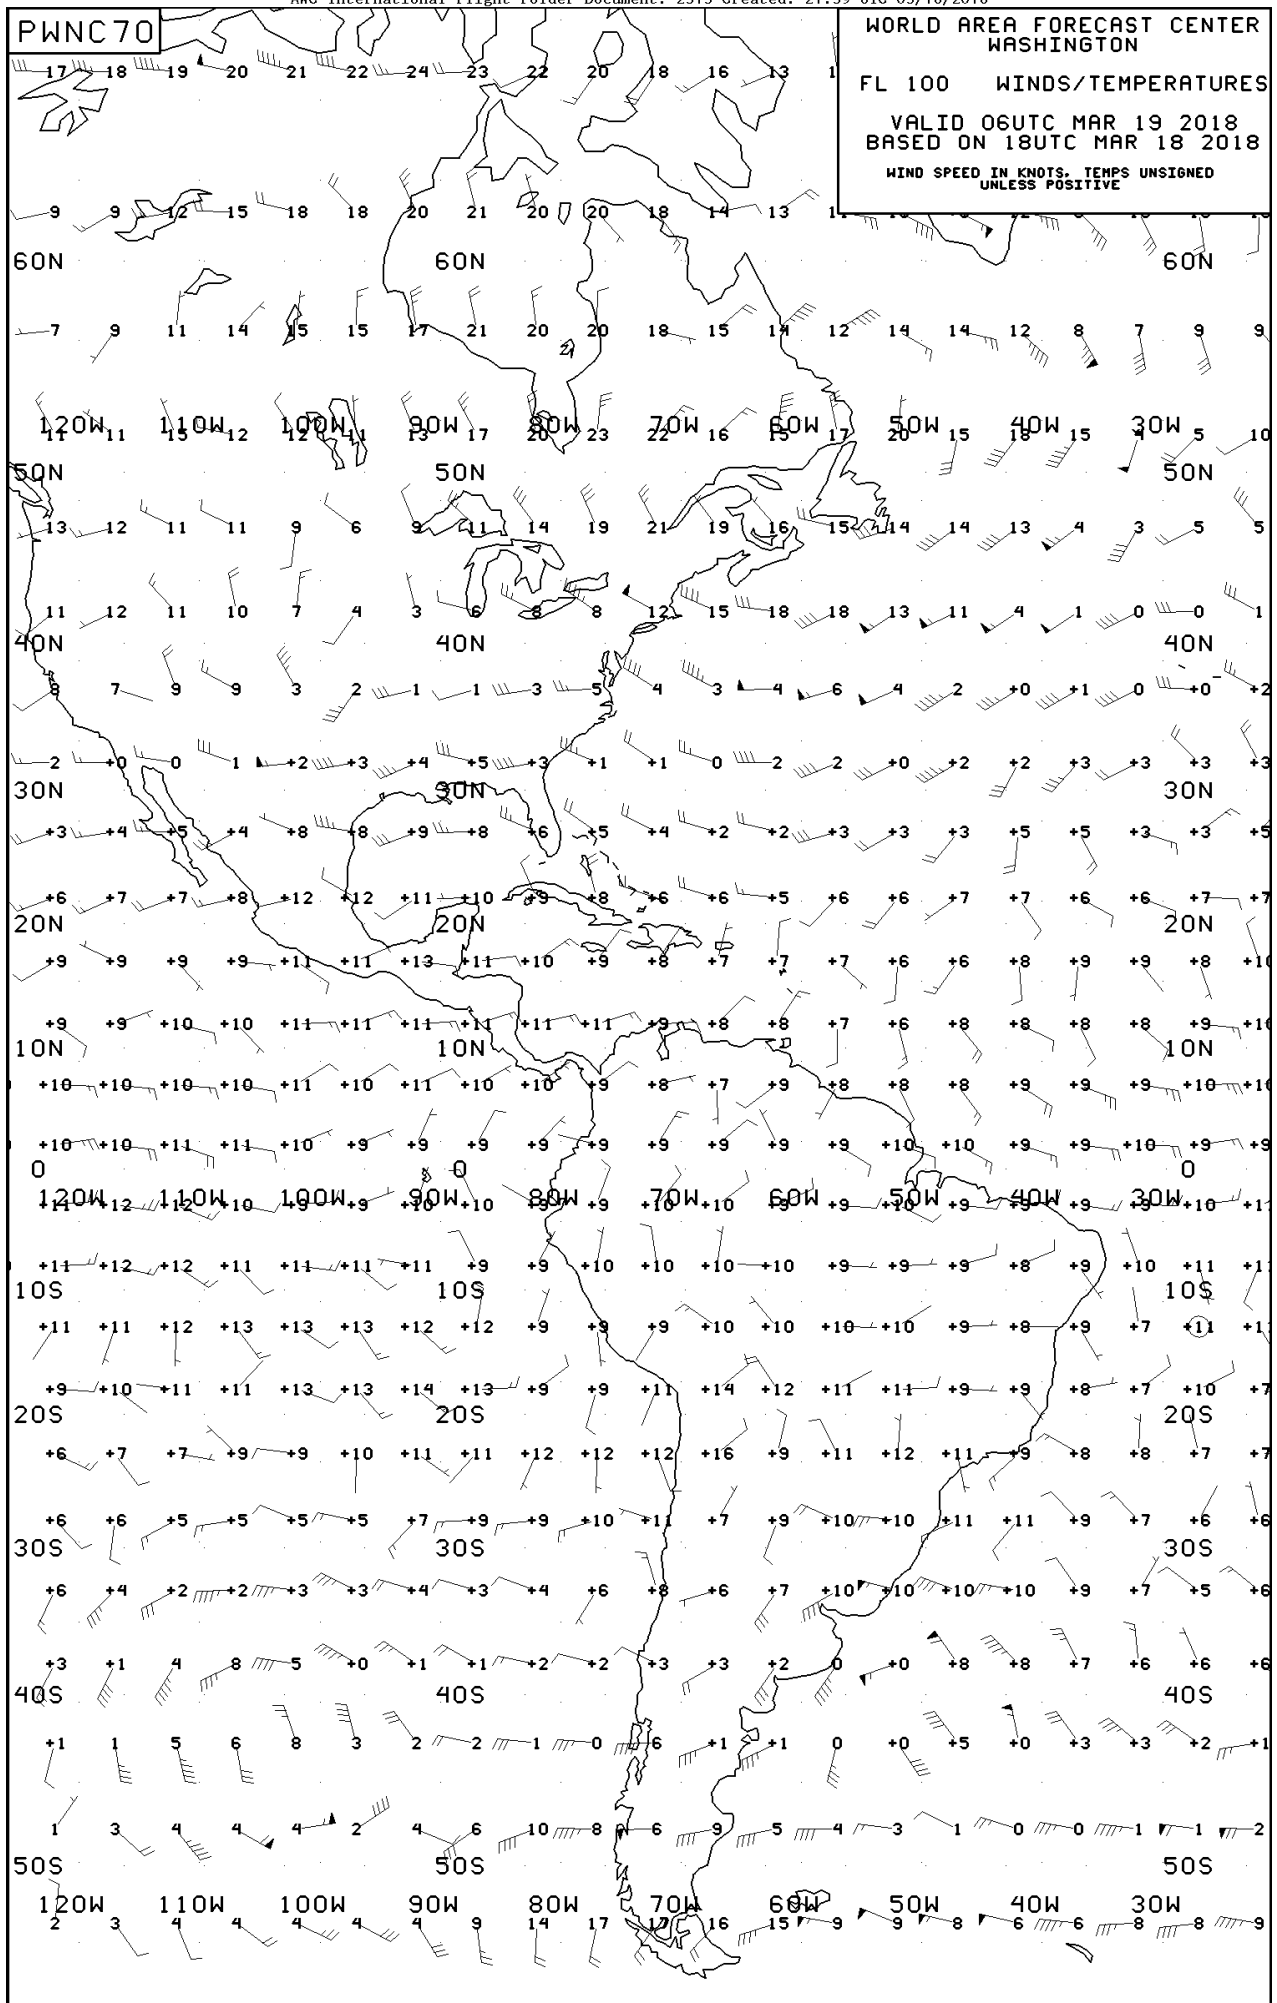 PWNC70
WORLD AREA FORECAST CENTER
WASHINGTON
FL 100 WINDS/TEMPERATURES
VALID 06UTC MAR 19 2018
BASED ON 18UTC MAR 18 2018
WIND SPEED IN KNOTS, TEMPS UNSIGNED
UNLESS POSITIVE
17 18 19 20 21 22 24 23 22 20 18 16 13
9 9 12 15 18 18 20 21 20 20 18 14 13
60N 60N 60N
7 9 11 14 15 15 17 21 20 20 18 15 14 12 14 14 12 8 7 9 9
120W 110W 100W 90W 80W 70W 60W 50W 40W 30W
11 11 15 12 12 11 13 17 20 23 22 16 15 17 20 15 18 15 4 5 10
50N 50N 50N
13 12 11 11 9 6 9 11 14 19 21 19 16 15 14 14 13 4 3 5 5
11 12 11 10 7 4 3 6 8 8 12 15 18 18 13 11 4 1 0 0 1
40N 40N 40N
8 7 9 9 3 2 1 1 3 5 4 3 4 6 4 2 +0 +1 0 +0 +2
2 +0 0 1 +2 +3 +4 +5 +3 +1 +1 0 2 2 +0 +2 +2 +3 +3 +3 +3
30N 30N 30N
+3 +4 +5 +4 +8 +8 +9 +8 +6 +5 +4 +2 +2 +3 +3 +3 +5 +5 +3 +3 +5
+6 +7 +7 +8 +12 +12 +11 +10 +9 +8 +6 +6 +5 +6 +6 +7 +7 +6 +6 +7 +7
20N 20N 20N
+9 +9 +9 +9 +11 +11 +13 +11 +10 +9 +8 +7 +7 +7 +6 +6 +8 +9 +9 +8
+9 +9 +10 +10 +11 +11 +11 +11 +11 +11 +9 +8 +8 +7 +6 +8 +8 +8 +8 +9
10N 10N 10N
+10 +10 +10 +10 +11 +10 +11 +10 +10 +9 +8 +7 +9 +8 +8 +8 +9 +9 +9 +10
+10 +10 +11 +11 +10 +9 +9 +9 +9 +9 +9 +9 +9 +9 +10 +10 +9 +9 +10 +9 +9
0 0 0
120W 110W 100W 90W 80W 70W 60W 50W 40W 30W
+11 +12 +12 +10 +9 +9 +10 +10 +9 +9 +10 +10 +9 +9 +10 +9 +9 +9 +9 +10
+11 +12 +12 +11 +11 +11 +11 +9 +9 +10 +10 +10 +10 +9 +9 +9 +8 +9 +10 +11
10S 10S 10S
+11 +11 +12 +13 +13 +13 +12 +12 +9 +9 +9 +10 +10 +10 +10 +9 +8 +9 +7 +11
+9 +10 +11 +11 +13 +13 +14 +13 +9 +9 +11 +14 +12 +11 +11 +9 +9 +8 +7 +10 +7
20S 20S 20S
+6 +7 +7 +9 +9 +10 +11 +11 +12 +12 +12 +16 +9 +11 +12 +11 +9 +8 +8 +7 +7
+6 +6 +5 +5 +5 +5 +7 +9 +9 +10 +11 +7 +9 +10 +10 +11 +11 +9 +7 +6 +6
30S 30S 30S
+6 +4 +2 +2 +3 +3 +4 +3 +4 +6 +8 +6 +7 +10 +10 +10 +10 +9 +7 +5 +6
+3 +1 4 8 5 +0 +1 +1 +2 +2 +3 +3 +2 0 +0 +8 +8 +7 +6 +6 +6
40S 40S 40S
+1 1 5 6 8 3 2 2 1 0 6 +1 +1 0 +0 +5 +0 +3 +3 +2 +1
1 3 4 4 4 2 4 6 10 8 6 9 5 4 3 1 0 0 1 1 2
50S 50S 50S
120W 110W 100W 90W 80W 70W 60W 50W 40W 30W
2 3 4 4 4 4 4 9 14 17 17 16 15 9 9 8 6 6 8 8 9